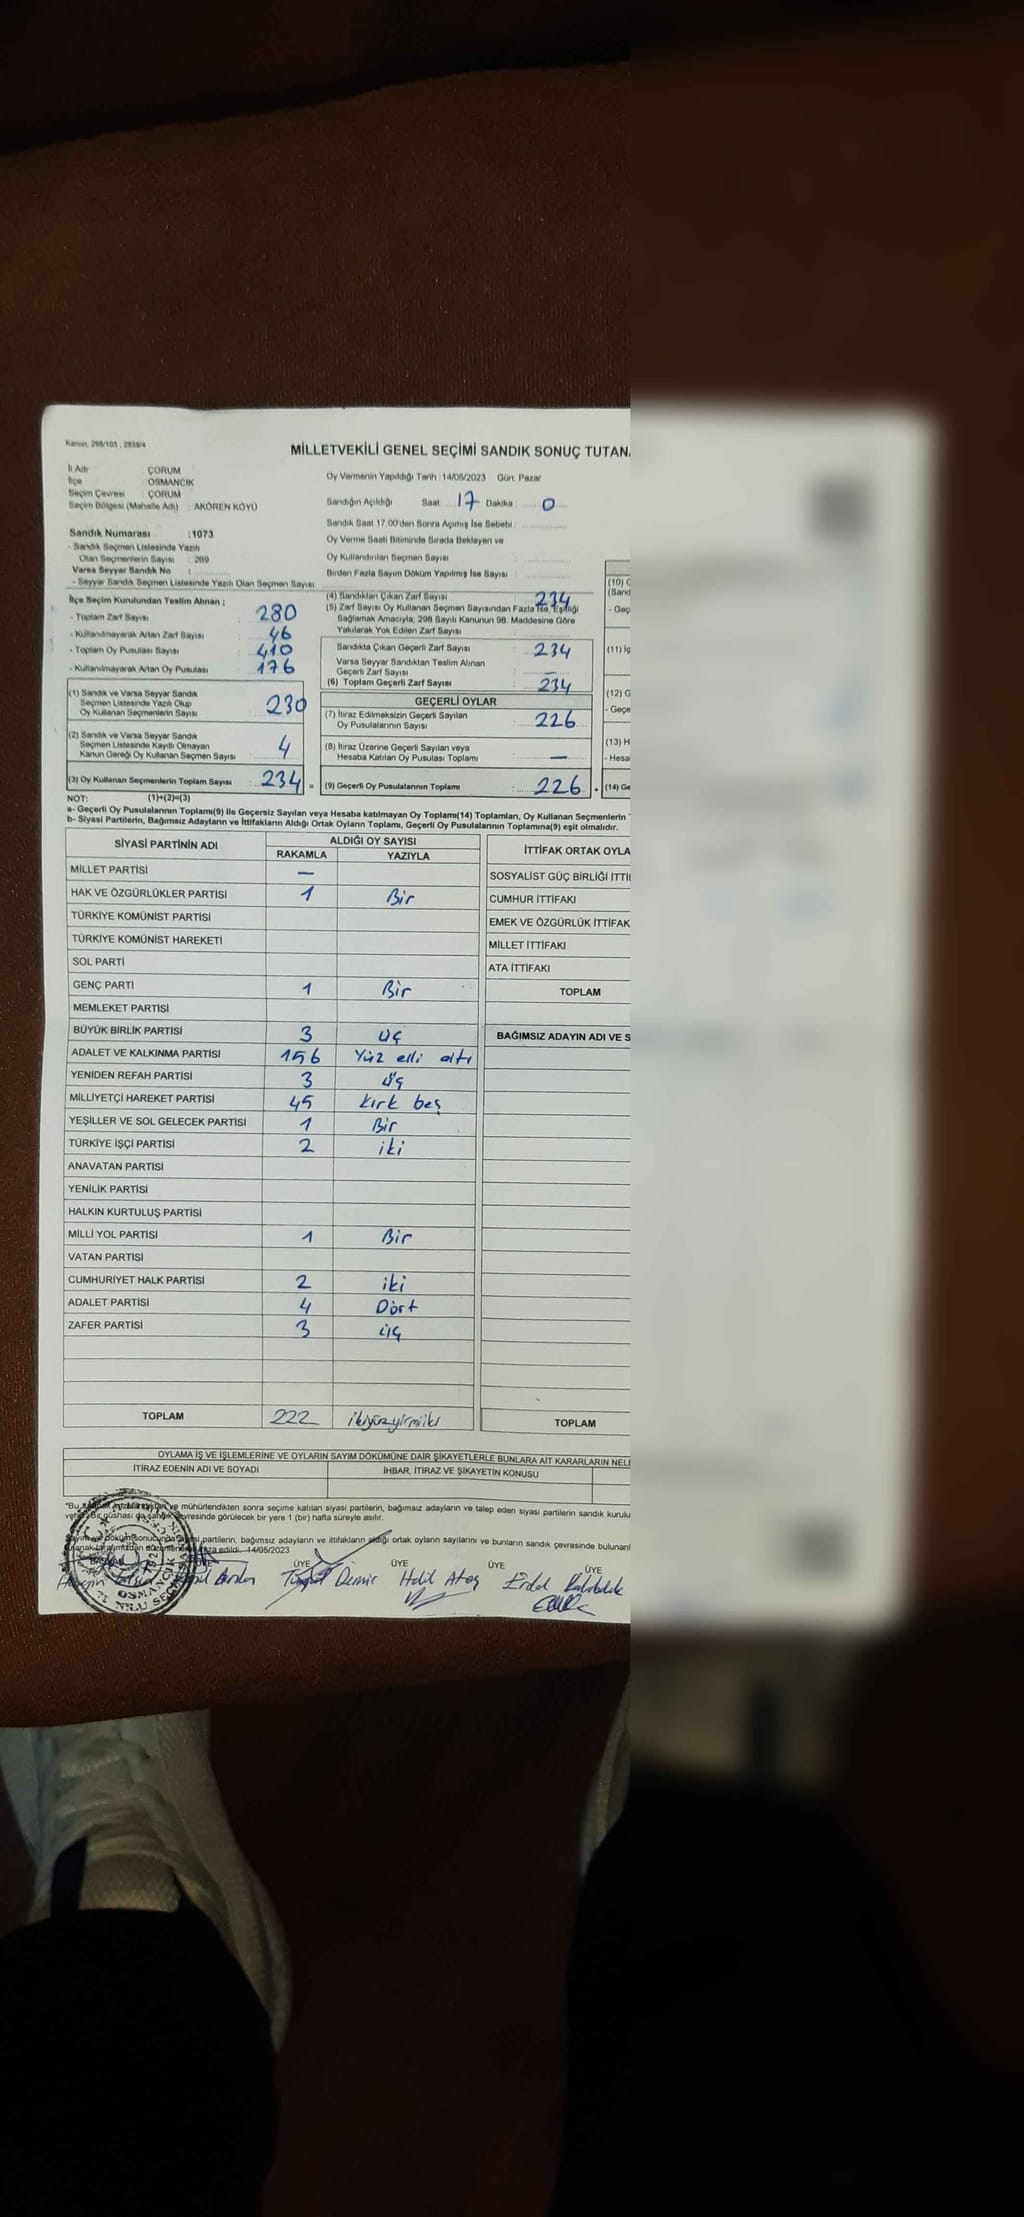 Kanun, 298/105 , 2839/4
MİLLETVEKİLİ GENEL SEÇİMİ SANDIK SONUÇ TUTANA
İl Adı : ÇORUM
İlçe : OSMANCIK
Seçim Çevresi : ÇORUM
Seçim Bölgesi (Mahalle Adı) : AKÖREN KÖYÜ
Oy Vermenin Yapıldığı Tarih : 14/05/2023 Gün: Pazar
Sandığın Açıldığı Saat 17 Dakika : 0
Sandık Saat 17.00'den Sonra Açılmış İse Sebebi :
Oy Verme Saati Bitiminde Sırada Bekleyen ve
Oy Kullandırılan Seçmen Sayısı :
Birden Fazla Sayım Döküm Yapılmış İse Sayısı :
Sandık Numarası :1073
- Sandık Seçmen Listesinde Yazılı
Olan Seçmenlerin Sayısı : 269
Varsa Seyyar Sandık No :
- Seyyar Sandık Seçmen Listesinde Yazılı Olan Seçmen Sayısı:
İlçe Seçim Kurulundan Teslim Alınan ;
- Toplam Zarf Sayısı : 280
- Kullanılmayarak Artan Zarf Sayısı : 46
- Toplam Oy Pusulası Sayısı : 410
- Kullanılmayarak Artan Oy Pusulası : 176
(1) Sandık ve Varsa Seyyar Sandık
Seçmen Listesinde Yazılı Olup
Oy Kullanan Seçmenlerin Sayısı : 230
(2) Sandık ve Varsa Seyyar Sandık
Seçmen Listesinde Kayıtlı Olmayan
Kanun Gereği Oy Kullanan Seçmen Sayısı : 4
(3) Oy Kullanan Seçmenlerin Toplam Sayısı : 234 =
(4) Sandıktan Çıkan Zarf Sayısı : 234
(5) Zarf Sayısı Oy Kullanan Seçmen Sayısından Fazla İse, Eşitliği
Sağlamak Amacıyla; 298 Sayılı Kanunun 98. Maddesine Göre
Yakılarak Yok Edilen Zarf Sayısı :
Sandıkta Çıkan Geçerli Zarf Sayısı : 234
Varsa Seyyar Sandıktan Teslim Alınan
Geçerli Zarf Sayısı : —
(6) Toplam Geçerli Zarf Sayısı : 234
GEÇERLİ OYLAR
(7) İtiraz Edilmeksizin Geçerli Sayılan
Oy Pusulalarının Sayısı : 226
(8) İtiraz Üzerine Geçerli Sayılan veya
Hesaba Katılan Oy Pusulası Toplamı : —
(9) Geçerli Oy Pusulalarının Toplamı : 226 +
(10) G
(Sand
- Geç
(11) İç
(12) G
- Geçe
(13) H
- Hesa
(14) Ge
NOT: (1)+(2)=(3)
a- Geçerli Oy Pusulalarının Toplamı(9) ile Geçersiz Sayılan veya Hesaba katılmayan Oy Toplamı(14) Toplamları, Oy Kullanan Seçmenlerin
b- Siyasi Partilerin, Bağımsız Adayların ve İttifakların Aldığı Ortak Oyların Toplamı, Geçerli Oy Pusulalarının Toplamına(9) eşit olmalıdır.
SİYASİ PARTİNİN ADI ALDIĞI OY SAYISI
RAKAMLA YAZIYLA
MİLLET PARTİSİ —
HAK VE ÖZGÜRLÜKLER PARTİSİ 1 Bir
TÜRKİYE KOMÜNİST PARTİSİ
TÜRKİYE KOMÜNİST HAREKETİ
SOL PARTİ
GENÇ PARTİ 1 Bir
MEMLEKET PARTİSİ
BÜYÜK BİRLİK PARTİSİ 3 üç
ADALET VE KALKINMA PARTİSİ 156 Yüz elli altı
YENİDEN REFAH PARTİSİ 3 üç
MİLLİYETÇİ HAREKET PARTİSİ 45 kırk beş
YEŞİLLER VE SOL GELECEK PARTİSİ 1 Bir
TÜRKİYE İŞÇİ PARTİSİ 2 iki
ANAVATAN PARTİSİ
YENİLİK PARTİSİ
HALKIN KURTULUŞ PARTİSİ
MİLLİ YOL PARTİSİ 1 Bir
VATAN PARTİSİ
CUMHURİYET HALK PARTİSİ 2 iki
ADALET PARTİSİ 4 Dört
ZAFER PARTİSİ 3 üç
TOPLAM 222 ikiyüzyirmiiki
İTTİFAK ORTAK OYLA
SOSYALİST GÜÇ BİRLİĞİ İTTİ
CUMHUR İTTİFAKI
EMEK VE ÖZGÜRLÜK İTTİFAK
MİLLET İTTİFAKI
ATA İTTİFAKI
TOPLAM
BAĞIMSIZ ADAYIN ADI VE S
TOPLAM
OYLAMA İŞ VE İŞLEMLERİNE VE OYLARIN SAYIM DÖKÜMÜNE DAİR ŞİKAYETLERLE BUNLARA AİT KARARLARIN NELE
İTİRAZ EDENİN ADI VE SOYADI İHBAR, İTİRAZ VE ŞİKAYETİN KONUSU
"Bu ve mühürlendikten sonra seçime katılan siyasi partilerin, bağımsız adayların ve talep eden siyasi partilerin sandık kurulu
Bir nüshası da sandık çevresinde görülecek bir yere 1 (bir) hafta süreyle asılır.
partilerin, bağımsız adayların ve ittifakların aldığı ortak oyların sayılarını ve bunların sandık çevresinde bulunan
edildi. 14/05/2023
ÜYE ÜYE ÜYE ÜYE ÜYE
Turgut Demir Halil Ateş Erdal
OSMANCIK